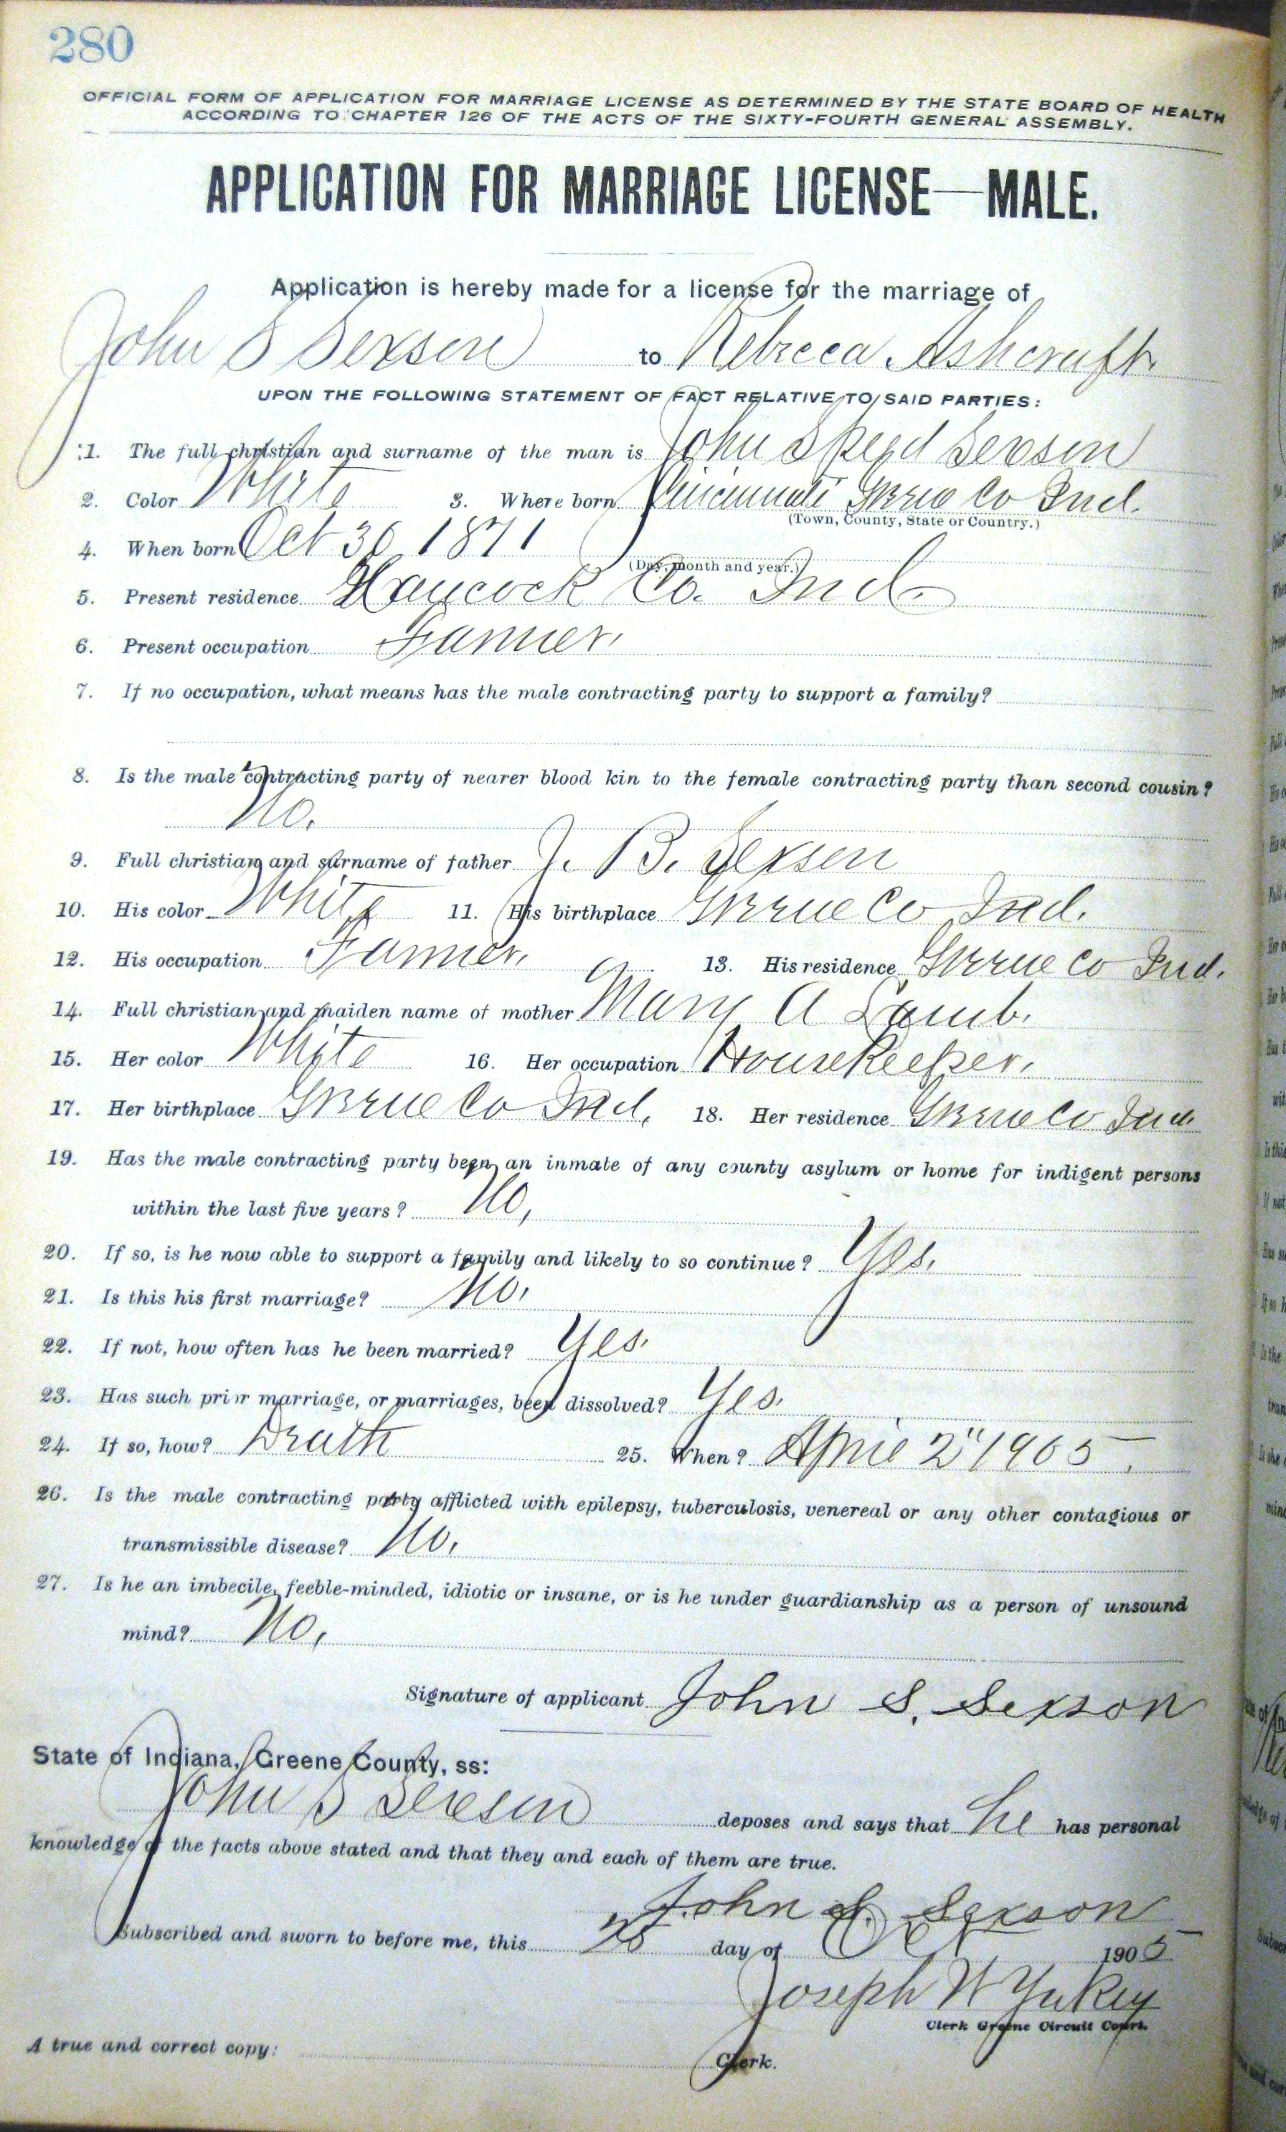 280
OFFICIAL FORM OF APPLICATION FOR MARRIAGE LICENSE AS DETERMINED BY THE STATE BOARD OF HEALTH
ACCORDING TO CHAPTER 126 OF THE ACTS OF THE SIXTY-FOURTH GENERAL ASSEMBLY.
APPLICATION FOR MARRIAGE LICENSE—MALE.
Application is hereby made for a license for the marriage of
John S Sexson to Rebecca Ashcraft
UPON THE FOLLOWING STATEMENT OF FACT RELATIVE TO SAID PARTIES:
1. The full christian and surname of the man is John Speed Sexson
2. Color White 3. Where born Cincinnati Greene Co Ind.
(Town, County, State or Country.)
4. When born Oct 30 1871
(Day, month and year.)
5. Present residence Hancock Co. Ind.
6. Present occupation Farmer.
7. If no occupation, what means has the male contracting party to support a family?
8. Is the male contracting party of nearer blood kin to the female contracting party than second cousin?
No.
9. Full christian and surname of father J. B. Sexson
10. His color White 11. His birthplace Greene Co Ind.
12. His occupation Farmer. 13. His residence Greene Co Ind.
14. Full christian and maiden name of mother Mary A Lamb.
15. Her color White 16. Her occupation Housekeeper.
17. Her birthplace Greene Co Ind. 18. Her residence Greene Co Ind
19. Has the male contracting party been an inmate of any county asylum or home for indigent persons
within the last five years? No,
20. If so, is he now able to support a family and likely to so continue? Yes.
21. Is this his first marriage? No.
22. If not, how often has he been married? Yes.
23. Has such prior marriage, or marriages, been dissolved? Yes.
24. If so, how? Death 25. When? April 2" 1905.
26. Is the male contracting party afflicted with epilepsy, tuberculosis, venereal or any other contagious or
transmissible disease? No.
27. Is he an imbecile, feeble-minded, idiotic or insane, or is he under guardianship as a person of unsound
mind? No.
Signature of applicant John S. Sexson
State of Indiana, Greene County, ss:
John S Sexson deposes and says that he has personal
knowledge of the facts above stated and that they and each of them are true.
John S. Sexson
Subscribed and sworn to before me, this day of Oct 1905
Joseph W Yakey
Clerk Greene Circuit Court.
A true and correct copy: Clerk.